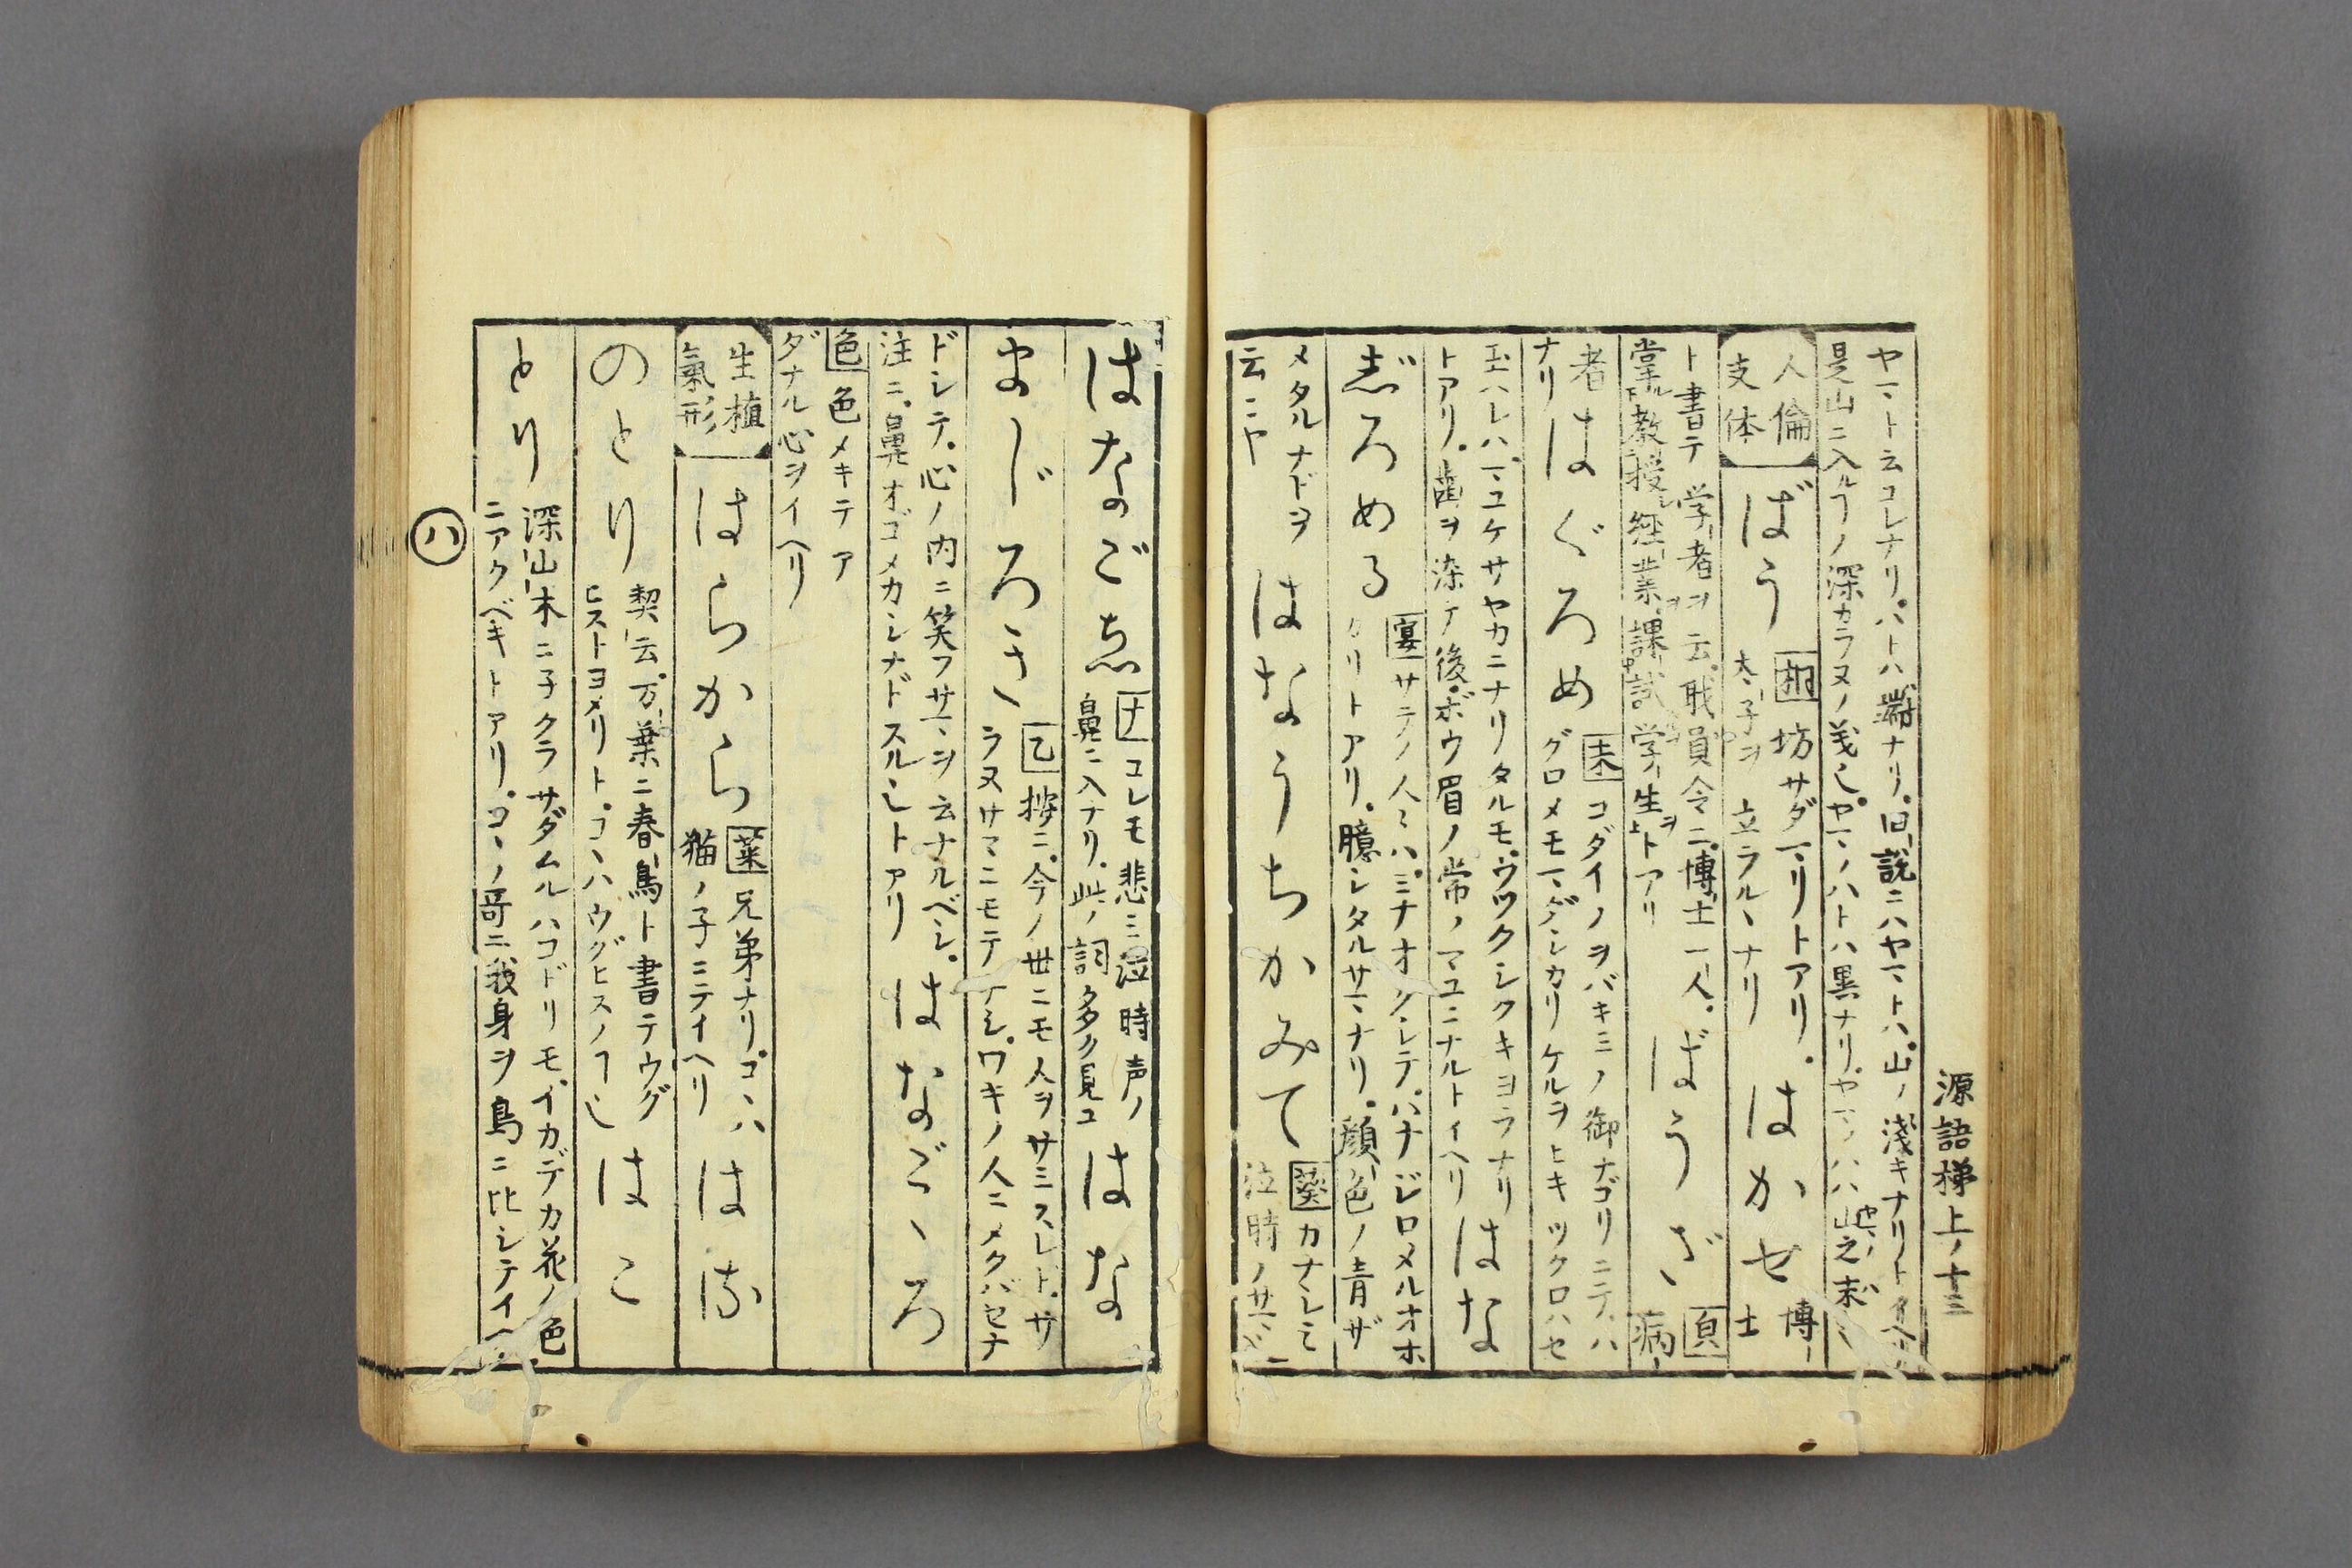 源語梯上ノ十三
ヤマト云コレナリ。ハトハ端ナリ。旧説ニハヤマトハ。山ノ淺キナリトイヘリ
是山ニ入ルヿノ深カラヌノ義也。ヤマノハトハ異ナリ。ヤマノハハ山之末也
人倫
支体
ばう
桐 坊サダマリトアリ。
太子ヲ立ラルヽナリ
はかせ
博士
ト書テ学者ヲ云。職員令ニ。博士一人。
掌教授経業課試学生トアリ
ばうざ
頁 病
者
ナリ
はぐろめ
末 コダイノヲバキミノ御ナゴリニテ。ハ
グロメモマダシカリケルヲヒキツクロハセ
玉ハレハ。マユケサヤカニナリタルモ。ウツクシクキヨラナリ
トアリ。歯ヲ染テ後。ボウ眉ノ常ノマユニナルトイヘリ
はな
じろめる
宴 サテノ人々ハ。ミナオクシテ。ハナジロメルオホ
カリトアリ。臆シタルサマナリ。顔色ノ青ザ
メタルナドヲ
云ニヤ
はなうちかみて
葵 カナシミ
泣時ノサマ也
はなごゑ
コレモ悲ミ泣時声ノ
鼻ニ入ナリ。此ノ詞多ク見ユ
はな
まじろき
乙 按ニ。今ノ世ニモ人ヲサミスレド。サ
ラヌサマニモテナシ。ワキノ人ニメクバセナ
ドシテ。心ノ内ニ笑フサマヲ云ナルベシ。
注ニ。鼻オゴメカシナドスル也トアリ
はなごゝろ
色 色メキテア
ダナル心ヲイヘリ
生植
氣形
はらから
菜 兄弟ナリ。コヽハ
猫ノ子ニテイヘリ
はゝ
のとり
契云。万葉ニ春鳥ト書テウグ
ヒストヨメリト。コヽハウグヒスノヿ也
はこ
とり
深山木ニ子クラサダムルハコドリモ。イカデカ花ノ色
ニアクベキトアリ。コノ哥ニ。我身ヲ鳥ニ比シテイヘリ
ハ